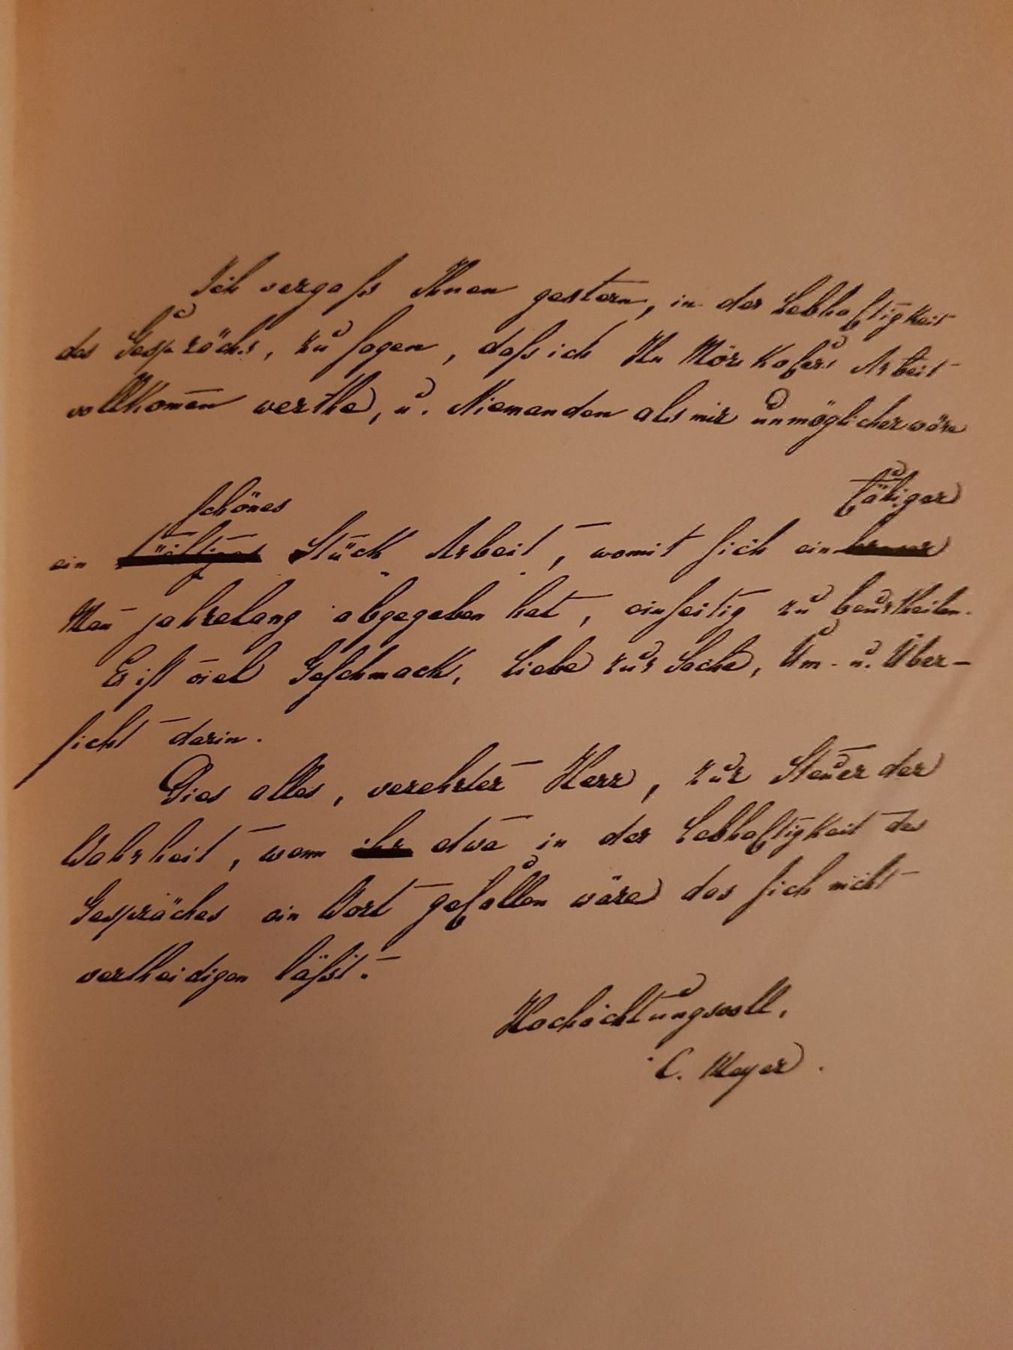 Ich vergaß Ihnen gestern, in der Lebhaftigkeit
des Gesprächs, zu sagen, daß ich Hn Mörikofers Arbeit
vollkom̄en werthe, u. Niemanden als mir unmöglicher wäre
schönes fähiger
ein Stück Arbeit, womit sich ein
Man̄ jahrelang abgegeben hat, einseitig zu beurtheilen.
Es ist viel Geschmack, Liebe zur Sache, Um- u. Über-
sicht darin.
Dies alles, verehrter Herr, zur Steuer der
Wahrheit, wenn ihr etwa in der Lebhaftigkeit des
Gespräches ein Wort gefallen wäre das sich nicht
vertheidigen läßt.
Hochachtungsvoll,
C. Meyer.